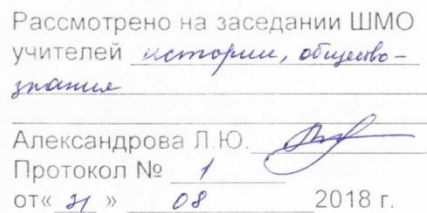 Рассмотрено на заседании ШМО
учителей истории, общество-
знания
Александрова Л.Ю.
Протокол № 1
от« 31 » 08 2018 г.